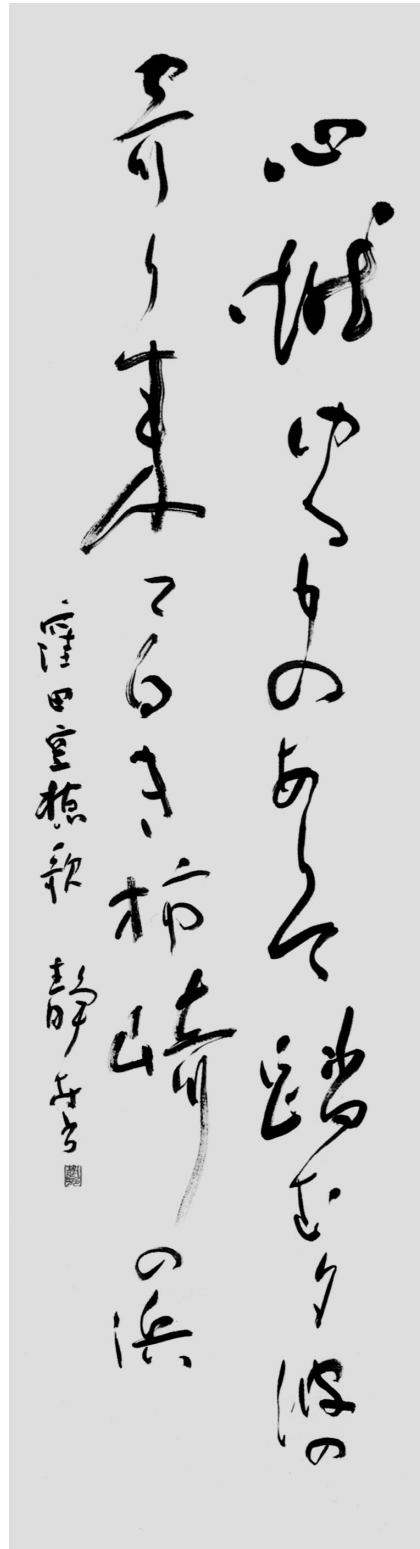 心燃ゆるものありて踏む夕波の
寄り来て白き柿崎の浜
窪田空穂歌 静書